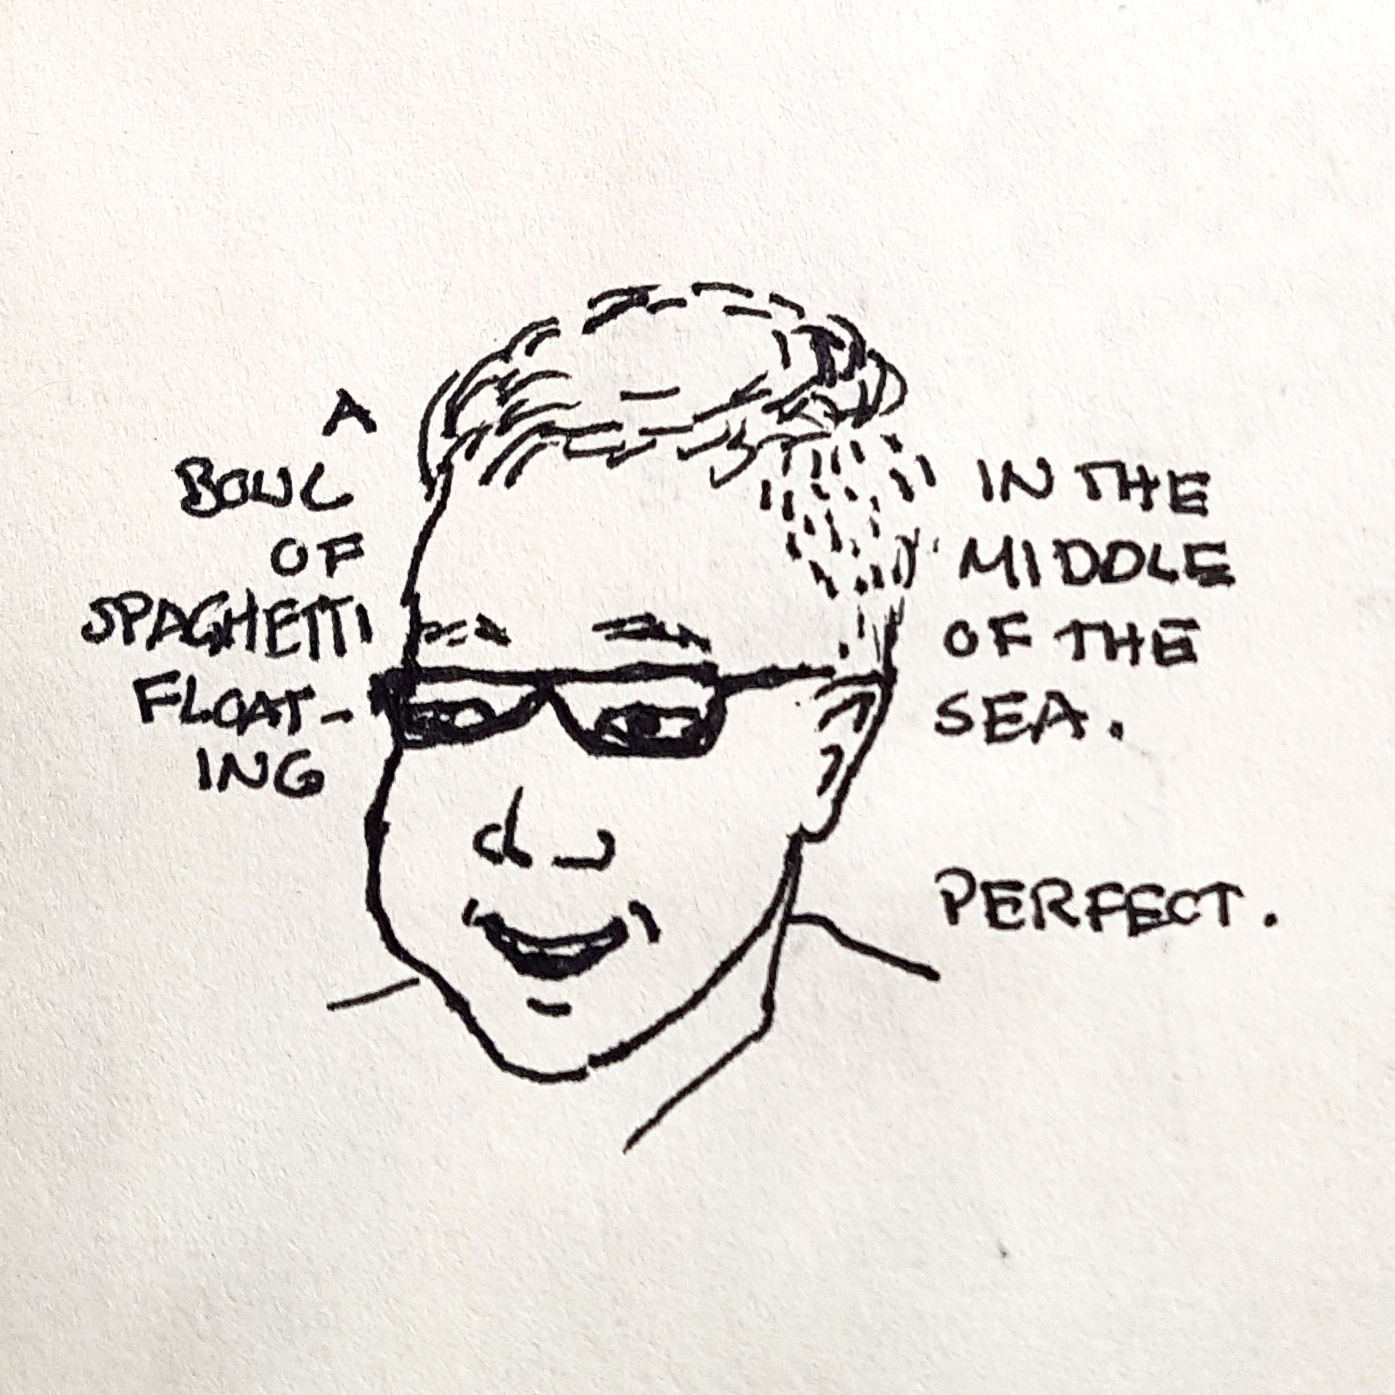 A
BOWL
OF
SPAGHETTI
FLOAT-
ING
IN THE
MIDDLE
OF THE
SEA.
PERFECT.